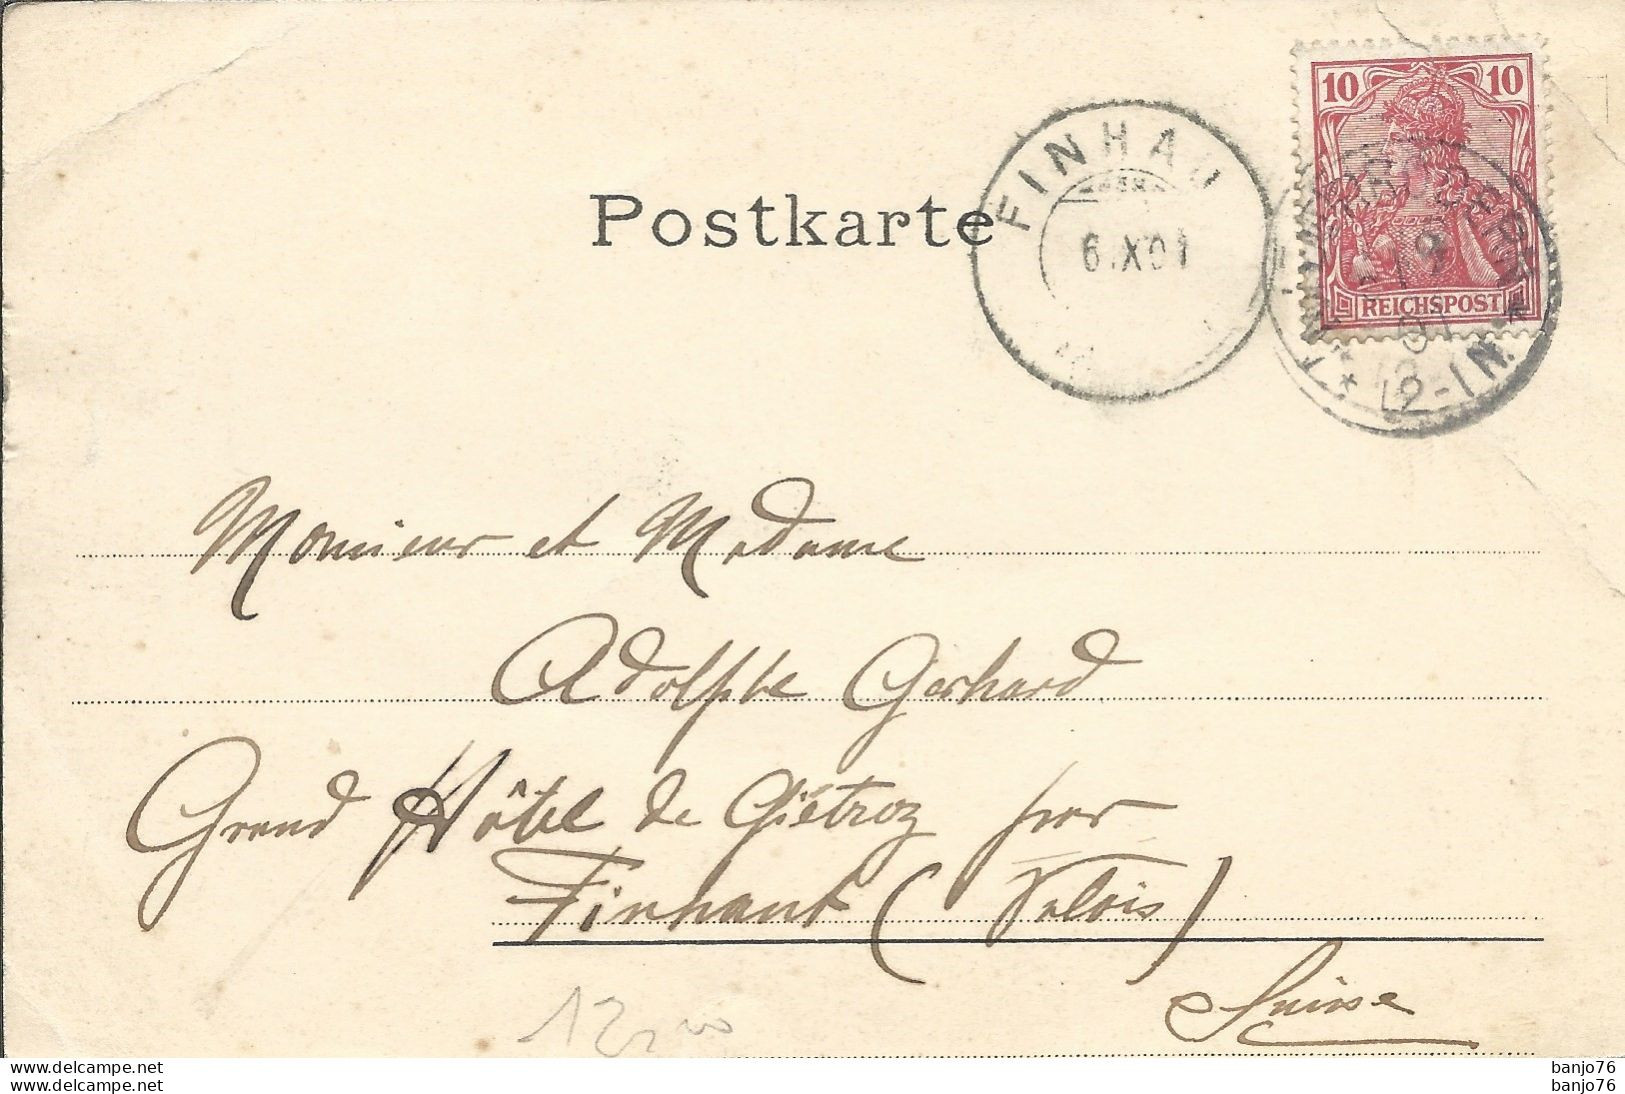 10 10
REICHSPOST
FINHAU
6.X01
12-1N.
Postkarte
Monsieur et Madame
Adolphe Gerhard
Grand Hôtel de Giétroz par
Finhaut (Valais)
Suisse
12,00
www.delcampe.net banjo76
www.delcampe.net banjo76